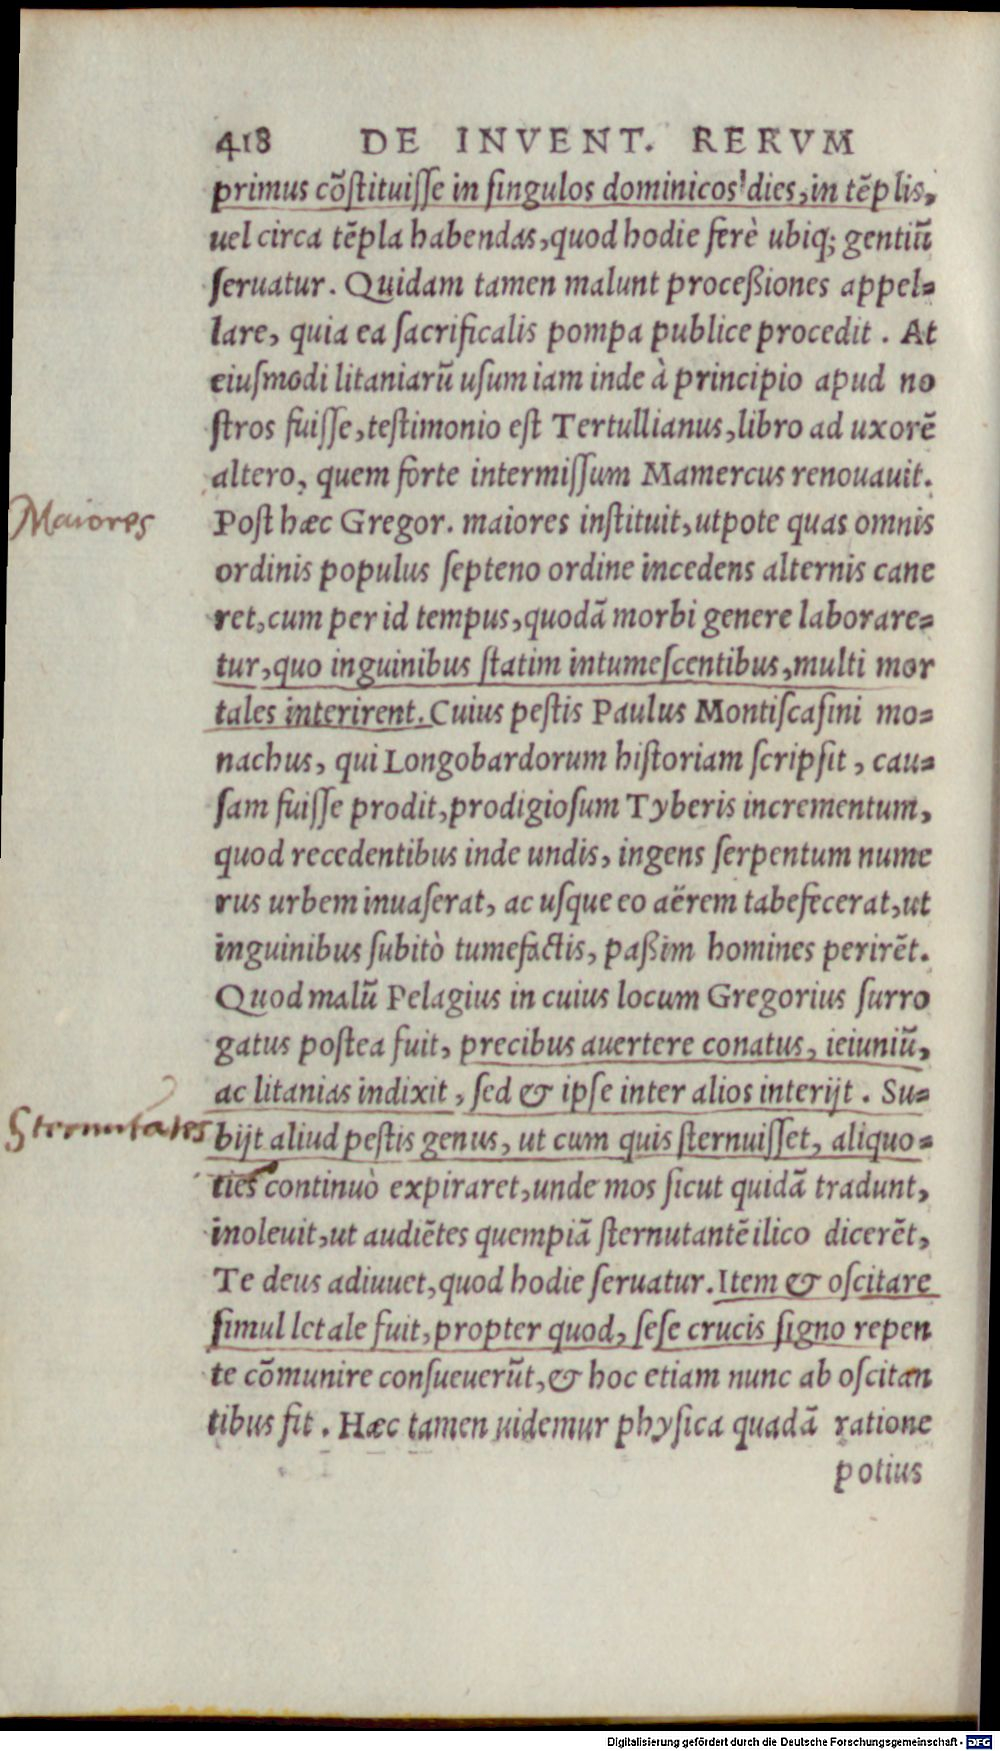 418 DE INVENT. RERVM
primus cõſtituiſſe in ſingulos dominicos dies, in tẽplis,
uel circa tẽpla habendas, quod hodie ferè ubiq; gentiũ
ſeruatur. Quidam tamen malunt proceßiones appel=
lare, quia ea ſacrificalis pompa publice procedit. At
eiuſmodi litaniarũ uſum iam inde à principio apud no
ſtros fuiſſe, teſtimonio eſt Tertullianus, libro ad uxorẽ
altero, quem forte intermiſſum Mamercus renouauit.
Maiores
Poſt hæc Gregor. maiores inſtituit, utpote quas omnis
ordinis populus ſepteno ordine incedens alternis cane
ret, cum per id tempus, quodã morbi genere laborare=
tur, quo inguinibus ſtatim intumeſcentibus, multi mor
tales interirent. Cuius peſtis Paulus Montiſcaſini mo=
nachus, qui Longobardorum hiſtoriam ſcripſit, cau=
ſam fuiſſe prodit, prodigioſum Tyberis incrementum,
quod recedentibus inde undis, ingens ſerpentum nume
rus urbem inuaſerat, ac uſque eo aërem tabefecerat, ut
inguinibus ſubitò tumefactis, paßim homines perirẽt.
Quod malũ Pelagius in cuius locum Gregorius ſurro
gatus poſtea fuit, precibus auertere conatus, ieiuniũ,
ac litanias indixit, ſed & ipſe inter alios interijt. Su=
Sternutātes
bijt aliud peſtis genus, ut cum quis ſternuiſſet, aliquo=
ties continuò expiraret, unde mos ſicut quidã tradunt,
inoleuit, ut audiẽtes quempiã ſternutantẽ ilico dicerẽt,
Te deus adiuuet, quod hodie ſeruatur. Item & oſcitare
ſimul letale fuit, propter quod, ſeſe crucis ſigno repen
te cõmunire conſueuerũt, & hoc etiam nunc ab oſcitan
tibus fit. Hæc tamen uidemur phyſica quadã ratione
potius
Digitalisierung gefördert durch die Deutsche Forschungsgemeinschaft - DFG